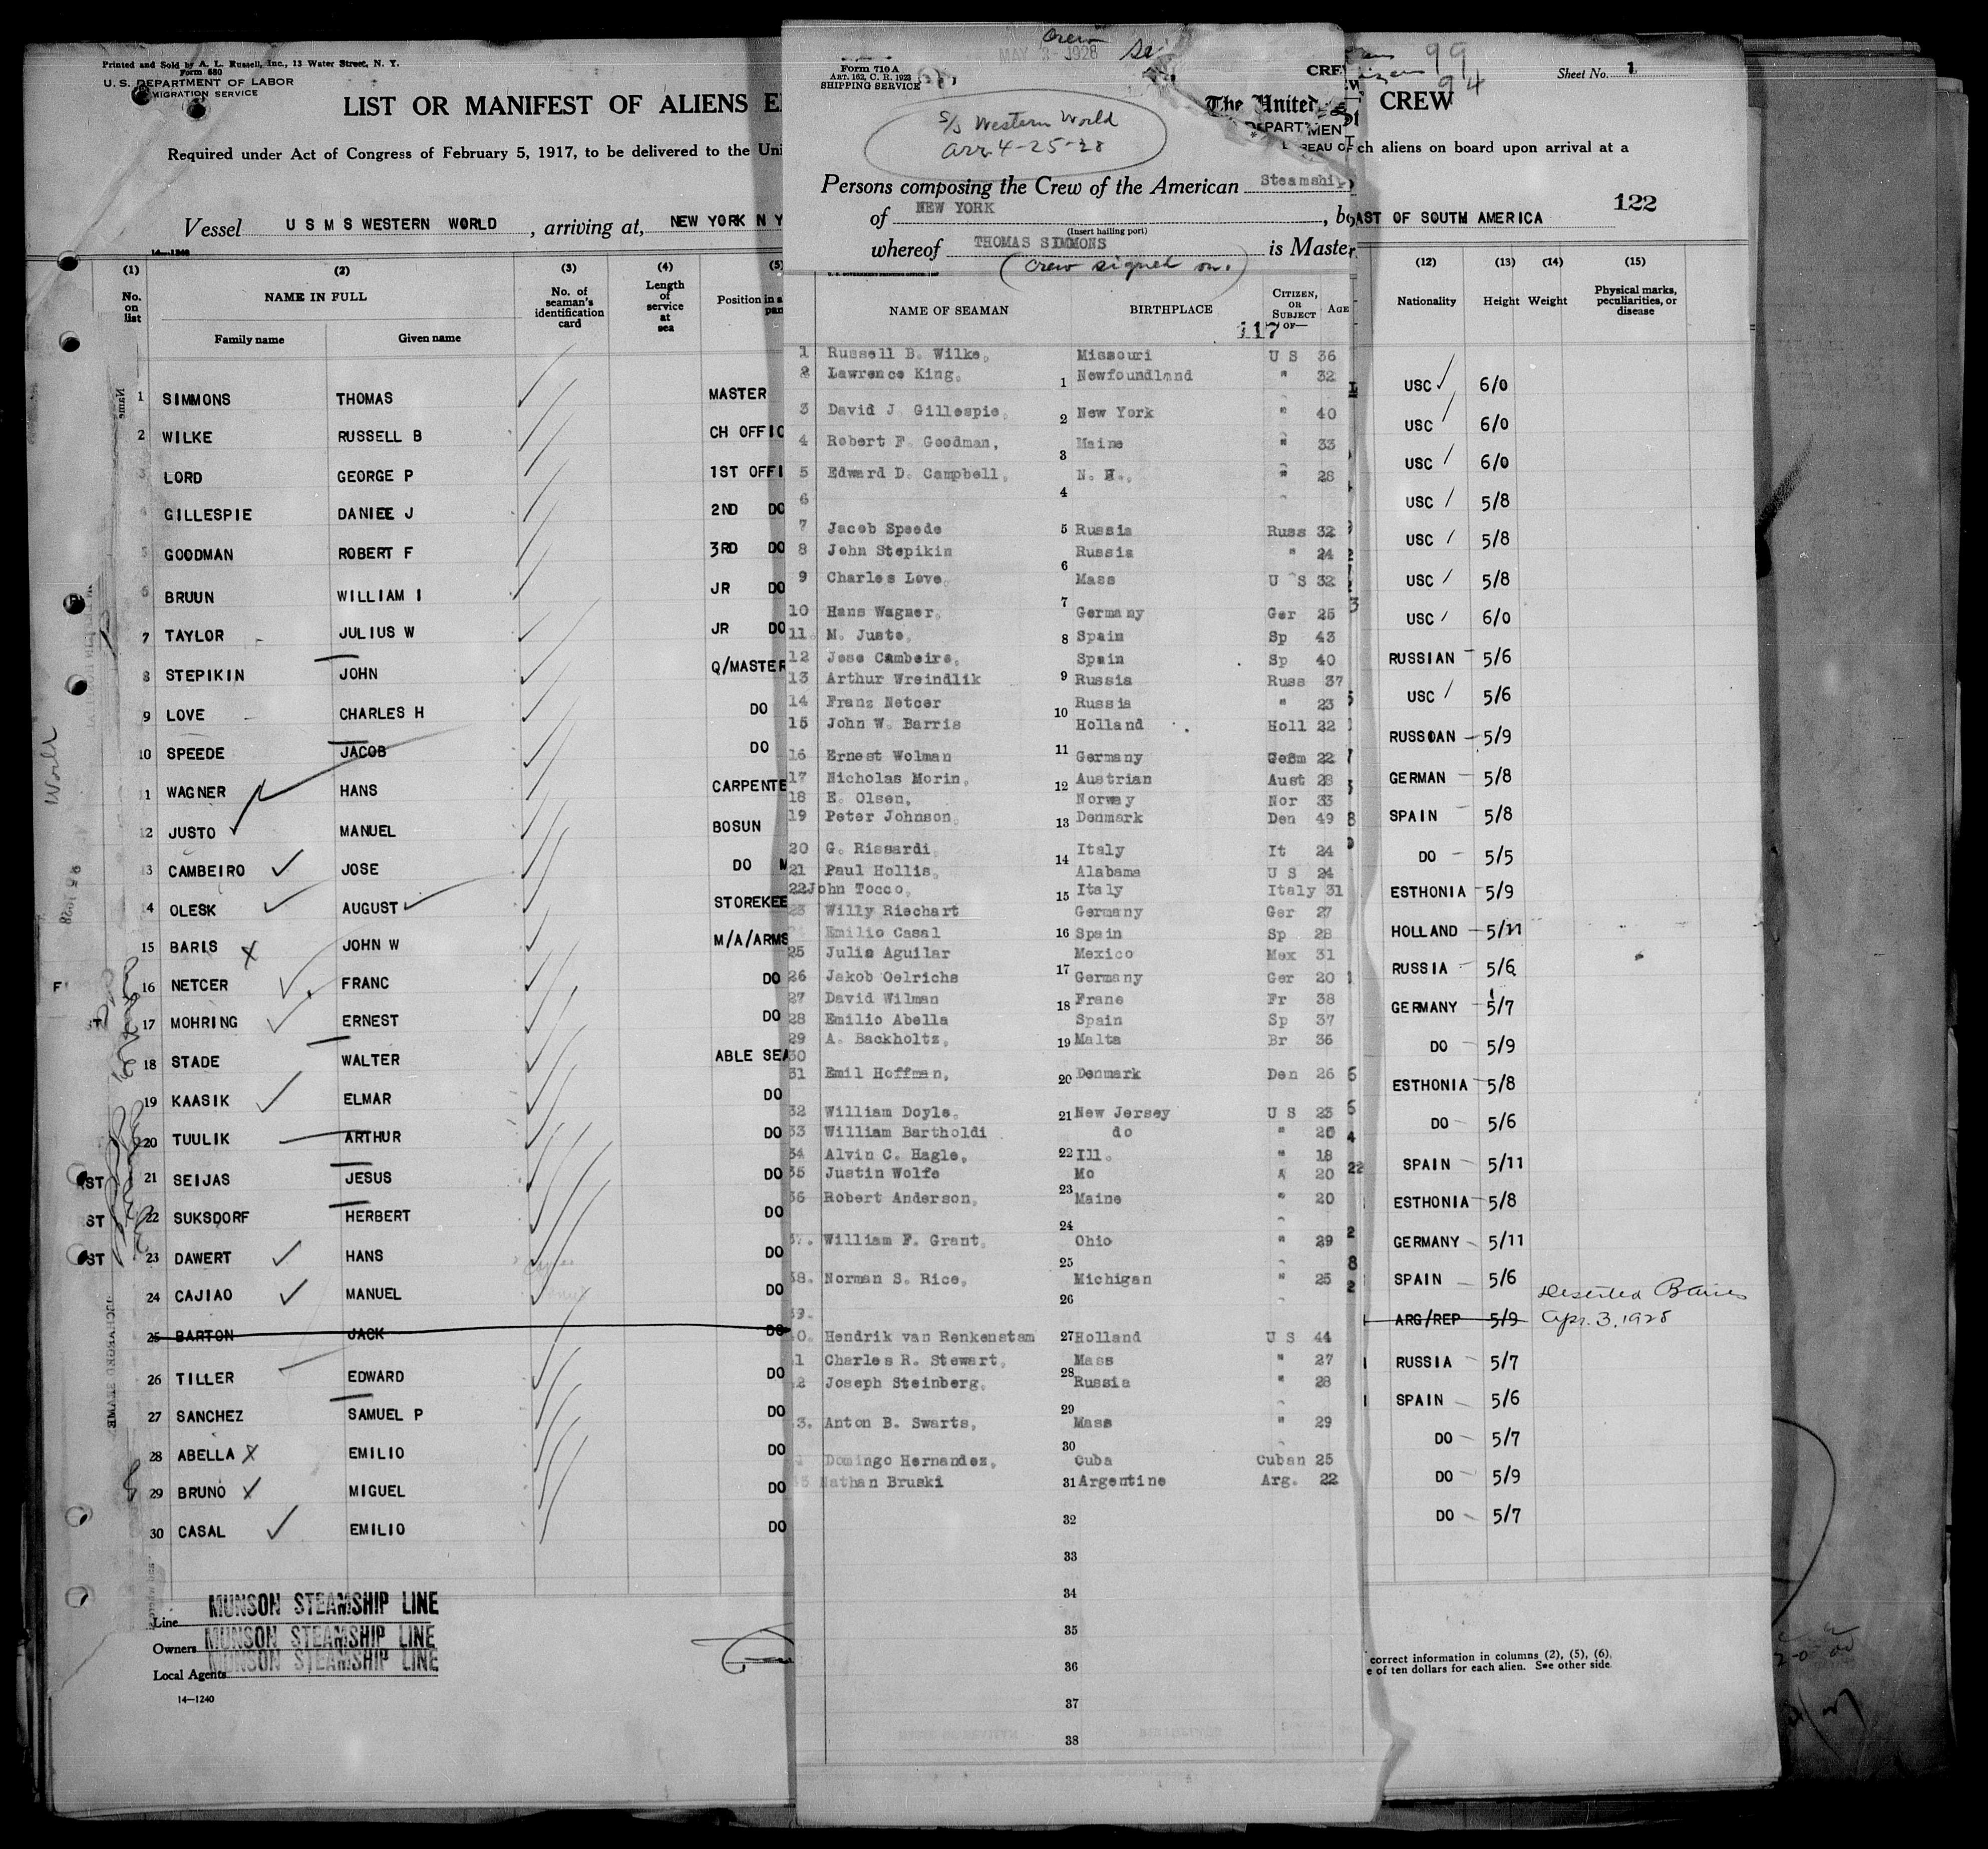 Printed and Sold by A. L. Russell, Inc., 13 Water Street, N. Y.
Form 680
U. S. DEPARTMENT OF LABOR
MIGRATION SERVICE
LIST OR MANIFEST OF ALIENS E
Required under Act of Congress of February 5, 1917, to be delivered to the Uni
Vessel U S M S WESTERN WORLD , arriving at, NEW YORK N Y
14—1240
(1) (2) (3) (4) (5)
No. on list NAME IN FULL No. of seaman's identification card Length of service at sea Position in s
Family name Given name
1 SIMMONS THOMAS MASTER
2 WILKE RUSSELL B CH OFFIC
3 LORD GEORGE P 1ST OFFI
4 GILLESPIE DANIEE J 2ND DO
5 GOODMAN ROBERT F 3RD DO
6 BRUUN WILLIAM I JR DO
7 TAYLOR JULIUS W JR DO
8 STEPIKIN JOHN Q/MASTER
9 LOVE CHARLES H DO
10 SPEEDE JACOB DO
11 WAGNER HANS CARPENTE
12 JUSTO MANUEL BOSUN
13 CAMBEIRO JOSE DO M
14 OLESK AUGUST STOREKEE
15 BARIS JOHN W M/A/ARMS
16 NETCER FRANC DO
17 MOHRING ERNEST DO
18 STADE WALTER ABLE SEA
19 KAASIK ELMAR DO
20 TUULIK ARTHUR DO
21 SEIJAS JESUS DO
22 SUKSDORF HERBERT DO
23 DAWERT HANS DO
24 CAJIAO MANUEL DO
25 BARTON JACK DO
26 TILLER EDWARD DO
27 SANCHEZ SAMUEL P DO
28 ABELLA EMILIO DO
29 BRUNO MIGUEL DO
30 CASAL EMILIO DO
Line MUNSON STEAMSHIP LINE
Owners MUNSON STEAMSHIP LINE
Local Agents MUNSON STEAMSHIP LINE
14—1240
Crew
MAY 3 1928
Form 710 A
ART. 162, C. R. 1923
SHIPPING SERVICE
CRE
The United
DEPARTMENT
BUREAU OF
S/S Western World
arr. 4-25-28
Persons composing the Crew of the American Steamshi
of NEW YORK , b
(Insert hailing port)
whereof THOMAS SIMMONS is Master
(Crew signed on.)
NAME OF SEAMAN BIRTHPLACE CITIZEN, OR SUBJECT OF— AGE
117
1 Russell B. Wilke, Missouri U S 36
2 Lawrence King, 1 Newfoundland " 32
3 David J Gillespie, 2 New York " 40
4 Robert F Goodman, Maine " 33
3
5 Edward D. Campbell, N. H., " 28
6 4
7 Jacob Speede 5 Russia Russ 32
8 John Stepikin Russia " 24
6
9 Charles Love Mass U S 32
7
10 Hans Wagner, Germany Ger 25
11. M. Juste, 8 Spain Sp 43
12 Jose Cambeire, Spain Sp 40
13 Arthur Wreindlik 9 Russia Russ 37
14 Franz Netcer Russia " 23
10
15 John W. Barris Holland Holl 22
16 Ernest Wolman 11 Germany Germ 22
17 Nicholas Morin, 12 Austrian Aust 28
18 E. Olsen, Norway Nor 33
19 Peter Johnson, 13 Denmark Den 49
20 G. Rissardi, Italy It 24
14
21 Paul Hollis, Alabama U S 24
22 John Tocco, 15 Italy Italy 31
23 Willy Riechart Germany Ger 27
Emilio Casal 16 Spain Sp 28
25 Julia Aguilar Mexico Mex 31
26 Jakob Oelrichs 17 Germany Ger 20
27 David Wilman 18 Frane Fr 38
28 Emilio Abella Spain Sp 37
29 A. Backholtz, 19 Malta Br 36
30
31 Emil Hoffman, 20 Denmark Den 26
32 William Doyle, 21 New Jersey U S 23
33 William Bartholdi do " 20
34 Alvin C. Hagle, 22 Ill. " 18
35 Justin Wolfe Mo 20
36 Robert Anderson, 23 Maine " 20
24
37. William F. Grant, Ohio " 29
25
38. Norman S. Rice, Michigan " 25
26
39.
40. Hendrik van Renkenstam 27 Holland U S 44
1 Charles R. Stewart, Mass " 27
28
2 Joseph Steinberg, Russia " 28
29
3. Anton B. Swarts, Mass " 29
30
Domingo Hernandez, Cuba Cuban 25
Nathan Bruski 31 Argentine Arg. 22
32
33
34
35
36
37
38
99
94
Sheet No. 1
CREW
ch aliens on board upon arrival at a
AST OF SOUTH AMERICA
122
(12) (13) (14) (15)
Nationality Height Weight Physical marks, peculiarities, or disease
USC 6/0
USC 6/0
USC 6/0
USC 5/8
USC 5/8
USC 5/8
USC 6/0
RUSSIAN 5/6
USC 5/6
RUSSOAN 5/9
GERMAN 5/8
SPAIN 5/8
DO 5/5
ESTHONIA 5/9
HOLLAND 5/11
RUSSIA 5/6
GERMANY 5/7
DO 5/9
ESTHONIA 5/8
DO 5/6
SPAIN 5/11
ESTHONIA 5/8
GERMANY 5/11
SPAIN 5/6
ARG/REP 5/9 Deserted B Aires Apr. 3. 1928
RUSSIA 5/7
SPAIN 5/6
DO 5/7
DO 5/9
DO 5/7
correct information in columns (2), (5), (6),
e of ten dollars for each alien. See other side